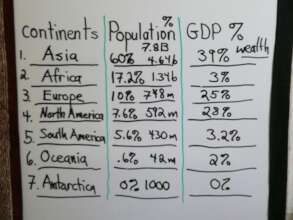 Continents Population % GDP %
7.8B wealth
1. Asia 60% 4.64b 39%
2. Africa 17.2% 1.34b 3%
3. Europe 10% 748m 25%
4. North America 7.6% 592m 28%
5. South America 5.6% 430m 3.2%
6. Oceania .6% 42m 2%
7. Antarctica 0% 1000 0%